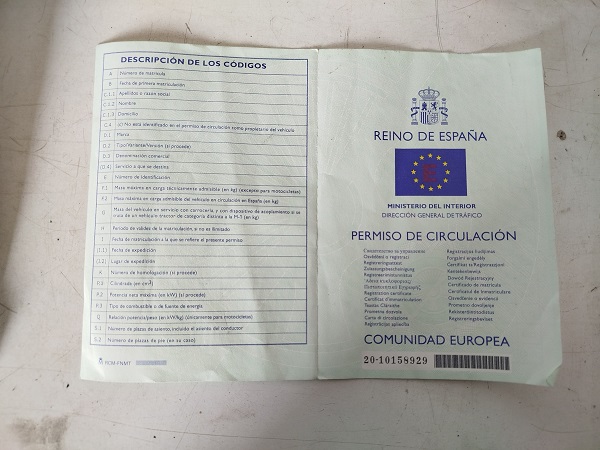 DESCRIPCIÓN DE LOS CÓDIGOS
A Número de matrícula
B Fecha de primera matriculación
C.1.1 Apellidos o razón social
C.1.2 Nombre
C.1.3 Domicilio
C.4 (c) No está identificado en el permiso de circulación como propietario del vehículo
D.1 Marca
D.2 Tipo/Variante/Versión (si procede)
D.3 Denominación comercial
(D.4) Servicio a que se destina
E Número de identificación
F.1 Masa máxima en carga técnicamente admisible (en kg) (excepto para motocicletas)
F.2 Masa máxima en carga admisible del vehículo en circulación en España (en kg)
G Masa del vehículo en servicio con carrocería y con dispositivo de acoplamiento si se
trata de un vehículo tractor de categoría distinta a la M-1 (en kg)
H Período de validez de la matriculación, si no es ilimitado
I Fecha de matriculación a la que se refiere el presente permiso
(I.1) Fecha de expedición
(I.2) Lugar de expedición
K Número de homologación (si procede)
P.1 Cilindrada (en cm³)
P.2 Potencia neta máxima (en kW) (si procede)
P.3 Tipo de combustible o de fuente de energía
Q Relación potencia/peso (en kW/kg) (únicamente para motocicletas)
S.1 Número de plazas de asiento, incluido el asiento del conductor
S.2 Número de plazas de pie (en su caso)
RCM-FNMT
REINO DE ESPAÑA
E
MINISTERIO DEL INTERIOR
DIRECCIÓN GENERAL DE TRÁFICO
PERMISO DE CIRCULACIÓN
Osvědčení o registraci
Registreringsattest
Zulassungsbescheinigung
Registreerimistunnistus
Registration certificate
Certificat d'immatriculation
Prometna dozvola
Carta di circolazione
Reģistrācijas apliecība
Registracijos liudijimas
Forgalmi engedély
Kentekenbewijs
Dowód Rejestracyjny
Certificado de matrícula
Certificatul de înmatriculare
Osvedčenie o evidencii
Prometno dovoljenje
Rekisteröintitodistus
Registreringsbeviset
COMUNIDAD EUROPEA
20-10158929